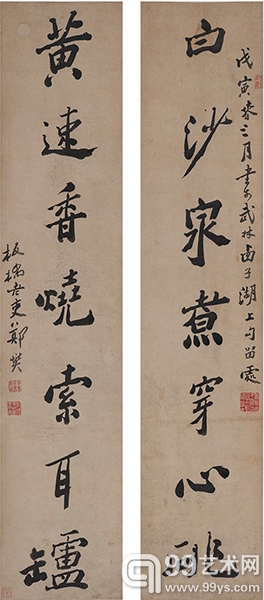 戊寅春三月書於武林西子湖上勾留處
白沙泉煮穿心
黄速香燒索耳罏
板橋老鄭燮
99艺术网
www.99ys.com